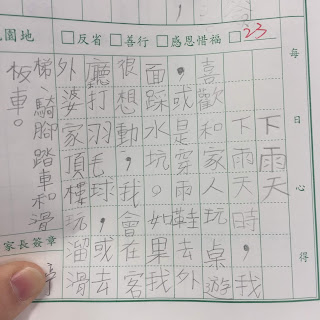 園地 □反省 □善行 □感恩惜福 □ 23
每日心得
下雨天
下雨天時，我
喜歡和家人玩桌遊
，或是穿雨鞋去外
面踩水坑。如果我
很想動，我會在客
廳打羽毛球，或去
外婆家頂樓玩溜滑
梯、騎腳踏車和滑
板車。
家長簽章